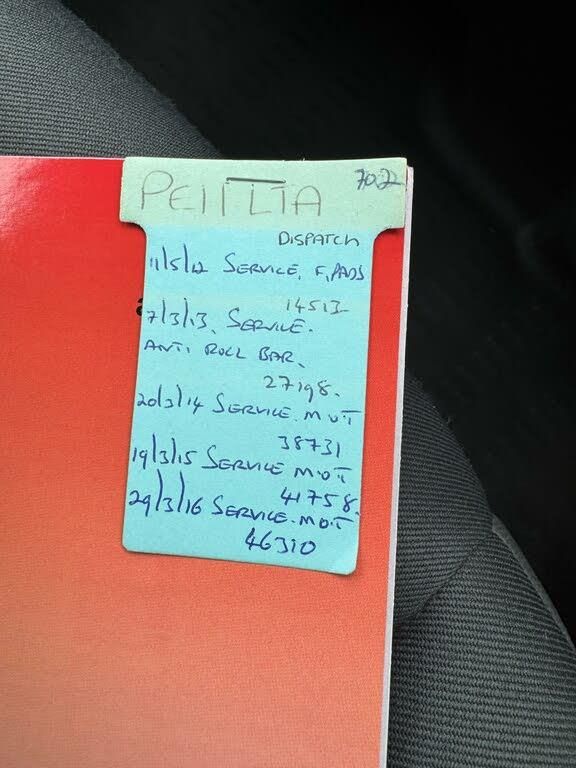 PE11 LTA 702
DISPATCH
11/5/12 SERVICE, F, PADS
14513
7/3/13, SERVICE.
ANTI ROLL BAR.
27198.
20/3/14 SERVICE. M.O.T
38731
19/3/15 SERVICE M.O.T
41758.
29/3/16 SERVICE. M.O.T
46310